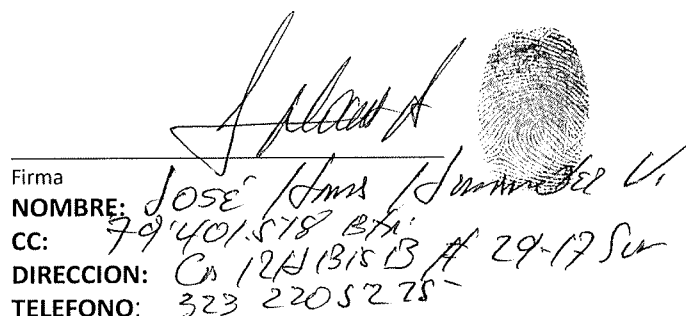 Firma
NOMBRE: José Hernandez V.
CC: 79'401.578 Bta.
DIRECCION: Cra 12H Bis B # 29-17 Sur
TELEFONO: 323 2205225